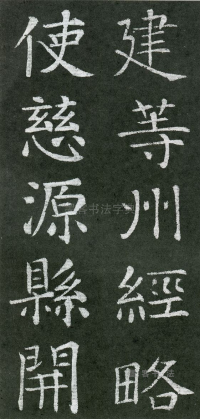 建等州經略
使慈源縣開